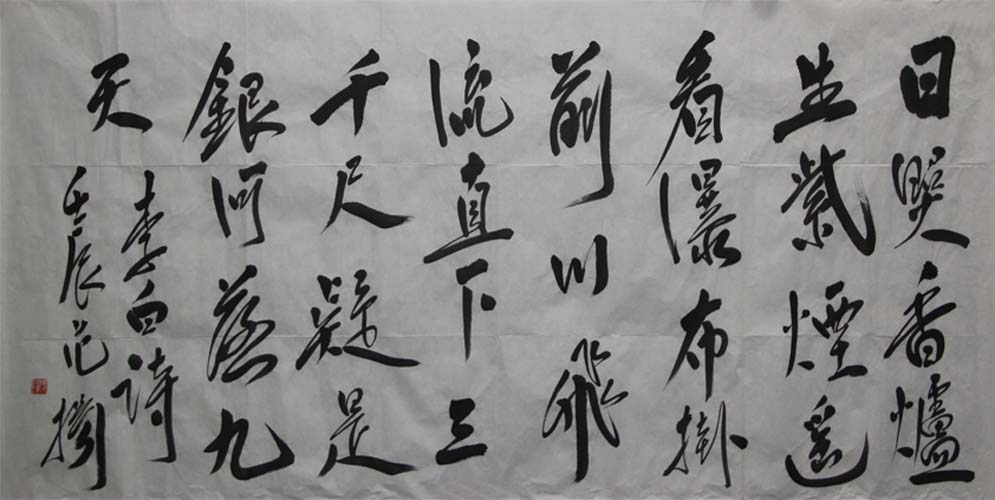 日照香爐
生紫煙遙
看瀑布掛
前川飛
流直下三
千尺疑是
銀河落九
天
李白詩
壬辰范